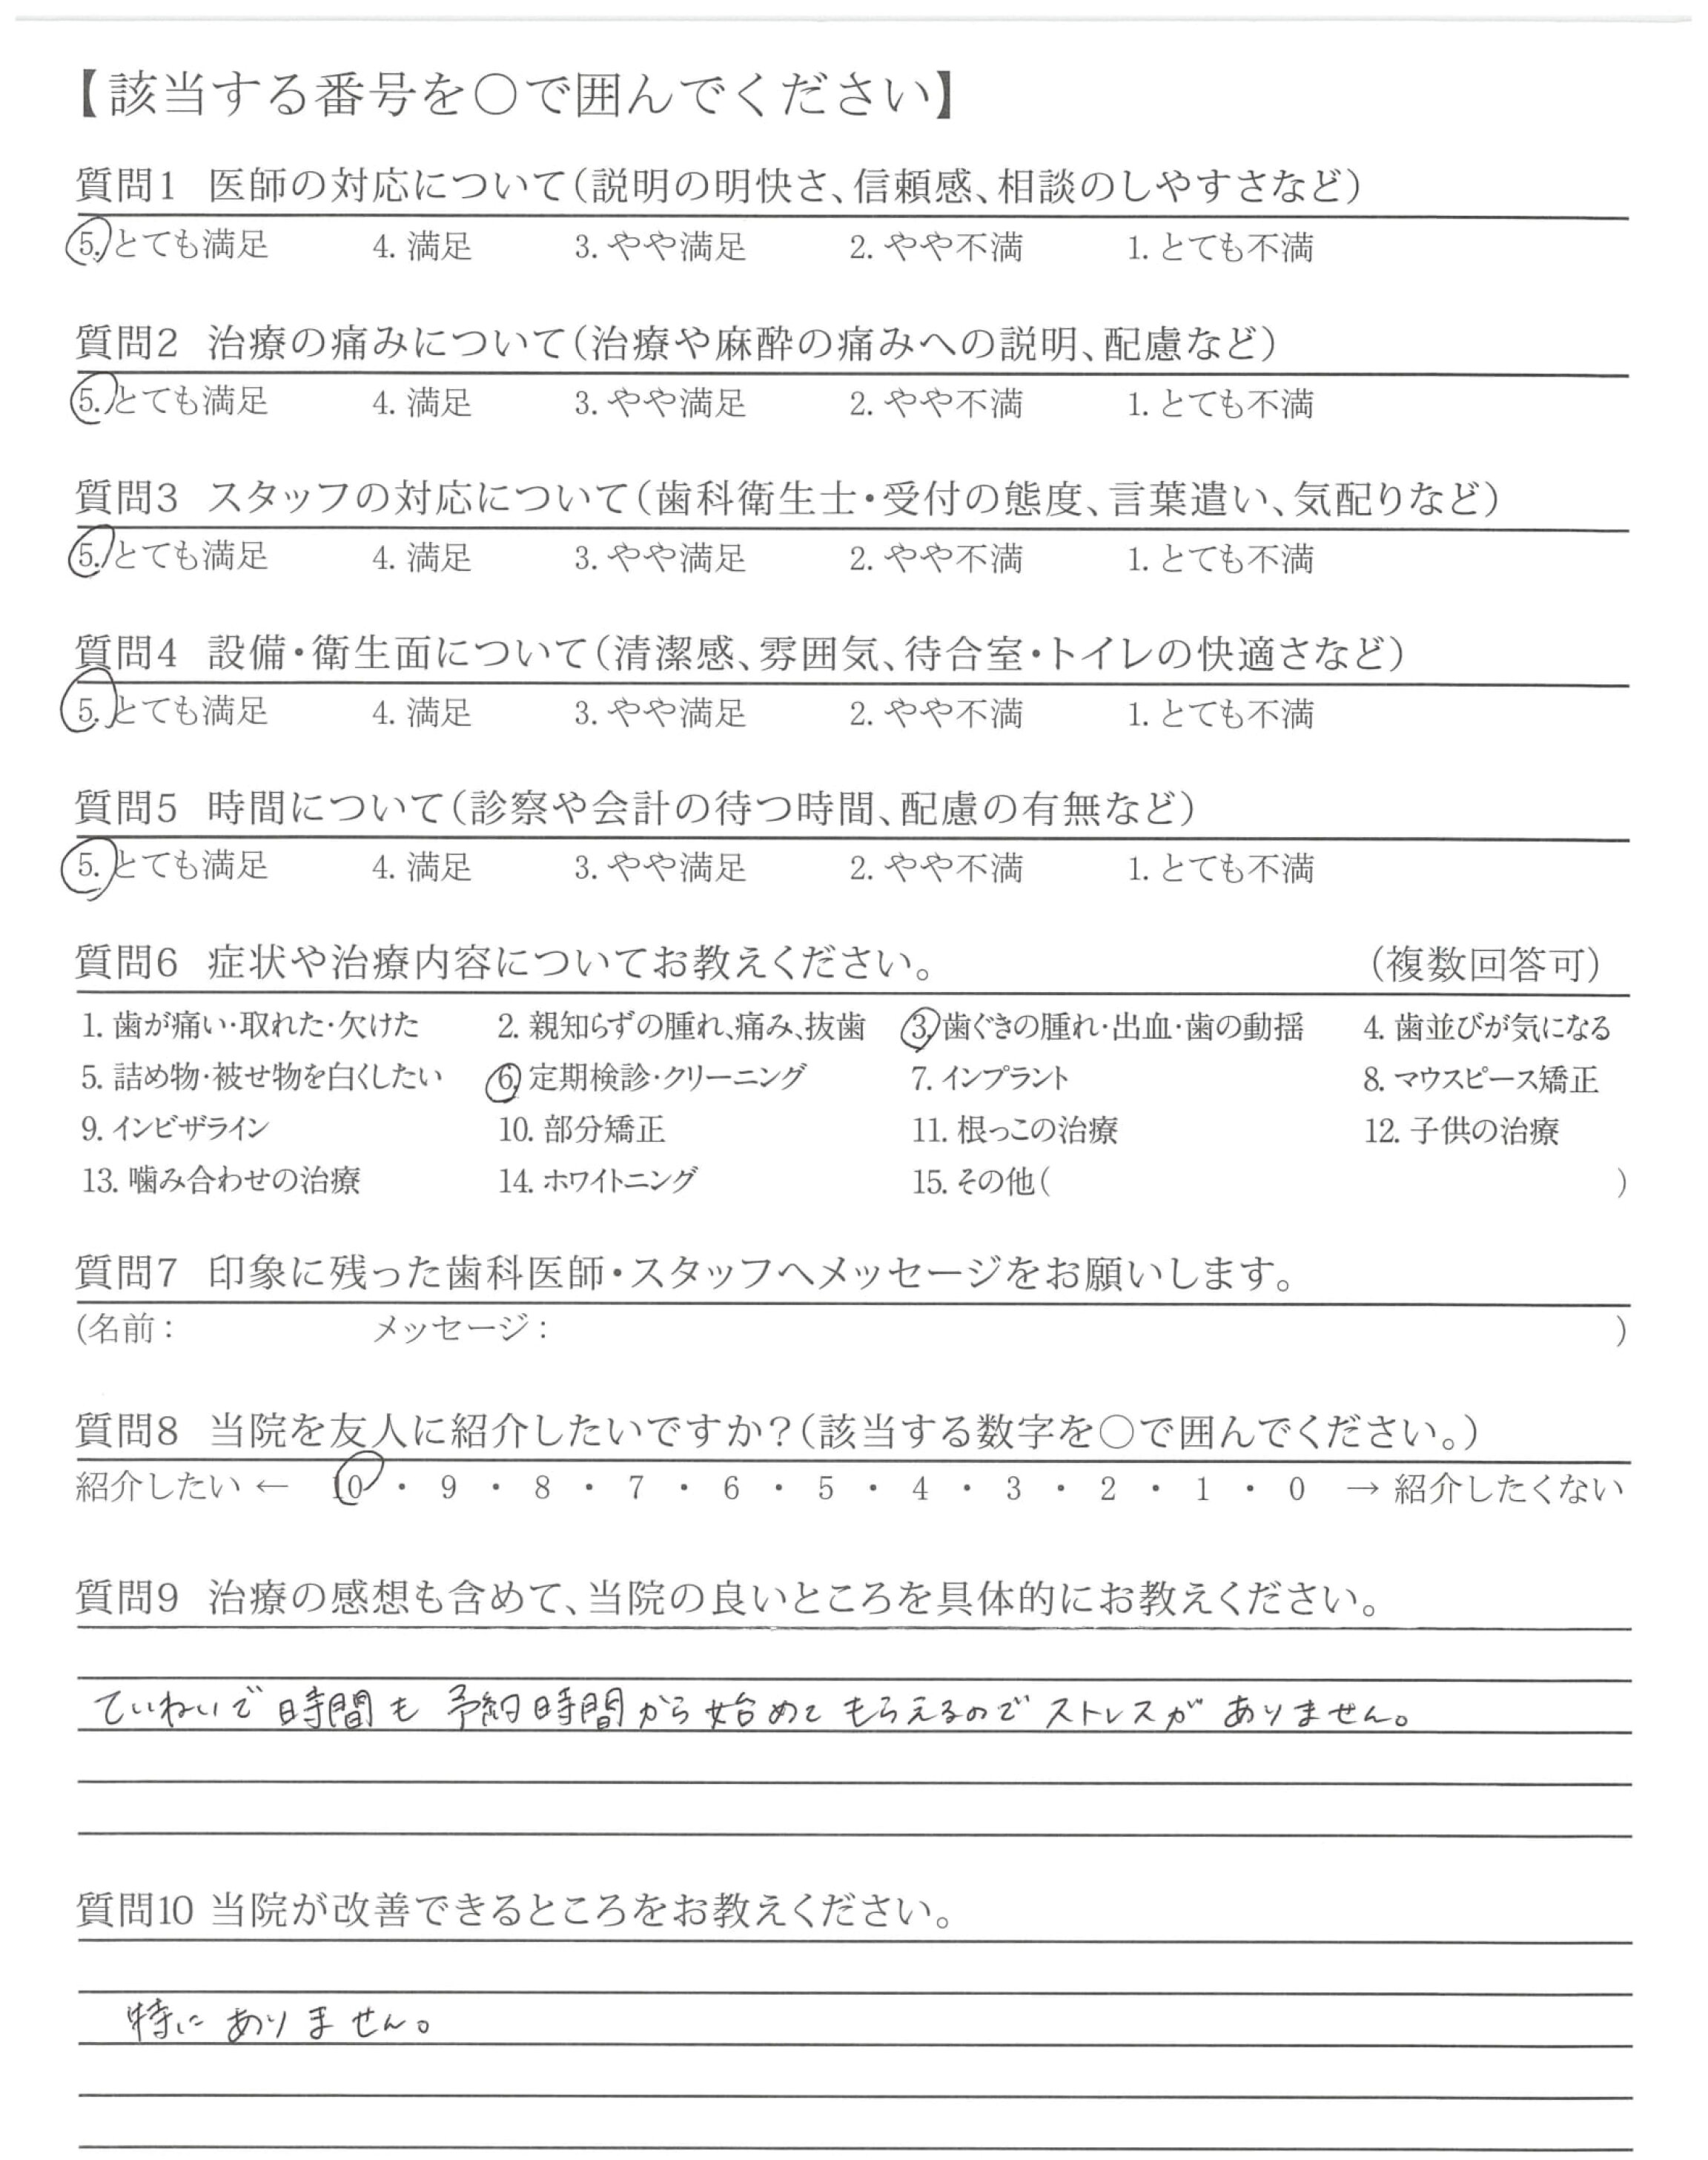 【該当する番号を○で囲んでください】
質問1 医師の対応について(説明の明快さ、信頼感、相談のしやすさなど)
5. とても満足 4. 満足 3. やや満足 2. やや不満 1. とても不満
質問2 治療の痛みについて(治療や麻酔の痛みへの説明、配慮など)
5. とても満足 4. 満足 3. やや満足 2. やや不満 1. とても不満
質問3 スタッフの対応について(歯科衛生士・受付の態度、言葉遣い、気配りなど)
5. とても満足 4. 満足 3. やや満足 2. やや不満 1. とても不満
質問4 設備・衛生面について(清潔感、雰囲気、待合室・トイレの快適さなど)
5. とても満足 4. 満足 3. やや満足 2. やや不満 1. とても不満
質問5 時間について(診察や会計の待つ時間、配慮の有無など)
5. とても満足 4. 満足 3. やや満足 2. やや不満 1. とても不満
質問6 症状や治療内容についてお教えください。 (複数回答可)
1. 歯が痛い・取れた・欠けた 2. 親知らずの腫れ、痛み、抜歯 3. 歯ぐきの腫れ・出血・歯の動揺 4. 歯並びが気になる
5. 詰め物・被せ物を白くしたい 6. 定期検診・クリーニング 7. インプラント 8. マウスピース矯正
9. インビザライン 10. 部分矯正 11. 根っこの治療 12. 子供の治療
13. 噛み合わせの治療 14. ホワイトニング 15. その他( )
質問7 印象に残った歯科医師・スタッフへメッセージをお願いします。
(名前： メッセージ： )
質問8 当院を友人に紹介したいですか？(該当する数字を○で囲んでください。)
紹介したい ← 10 ・ 9 ・ 8 ・ 7 ・ 6 ・ 5 ・ 4 ・ 3 ・ 2 ・ 1 ・ 0 → 紹介したくない
質問9 治療の感想も含めて、当院の良いところを具体的にお教えください。
ていねいで 時間も 予約時間から始めて もらえるので ストレスが ありません。
質問10 当院が改善できるところをお教えください。
特に ありません。